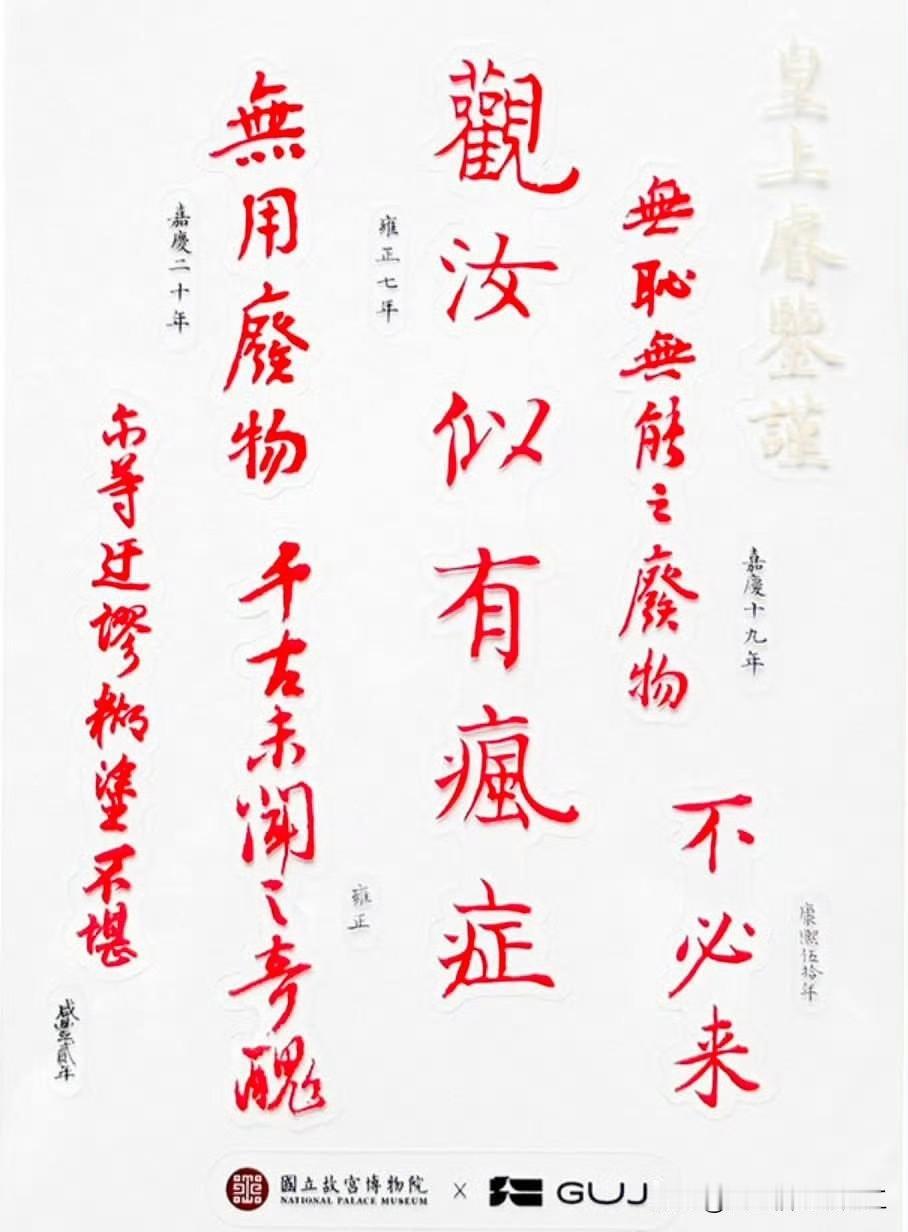 皇上睿鑒謹
無恥無能之廢物
嘉慶十九年
不必来
康熙伍拾年
觀汝似有瘋症
雍正七年
無用廢物
嘉慶二十年
千古未聞之奇醜
雍正
尔等迂謬糊塗不堪
咸豐貳年
國立故宮博物院
NATIONAL PALACE MUSEUM
X
GUJ